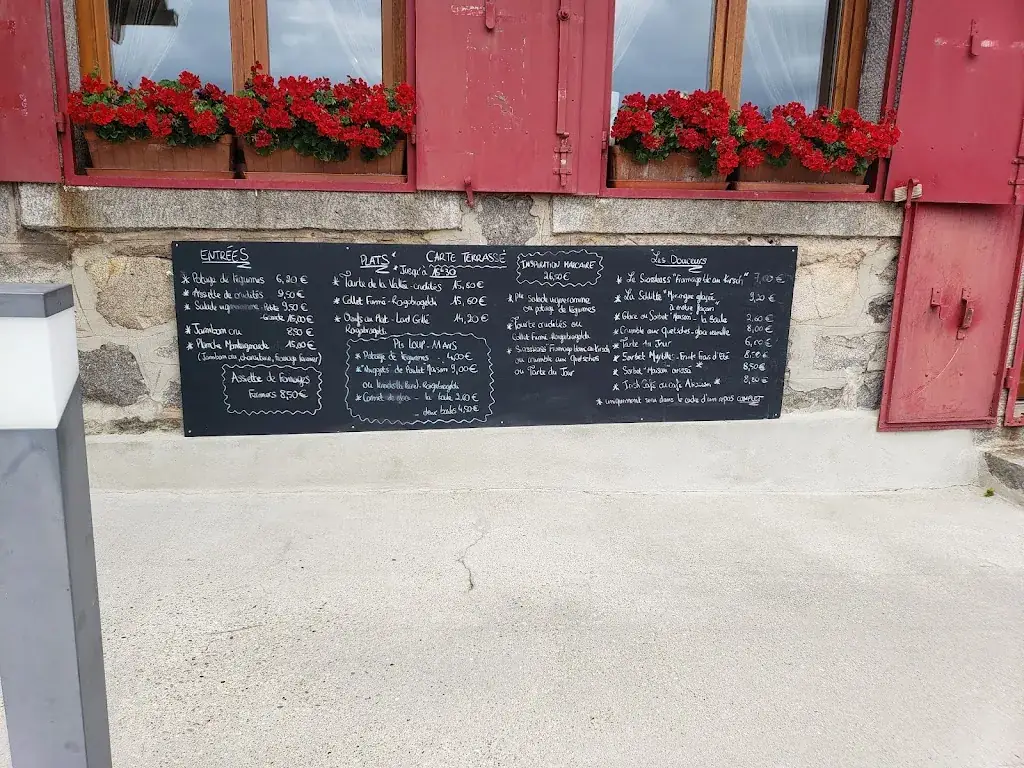 ENTRÉES
* Potage de légumes 6,20 €
* Assiette de crudités 9,50 €
* Salade vigneronne Petite 9,50 €
Grande 15,00 €
* Jambon cru 8,50 €
* Planche Montagnarde 15,00 €
(Jambon cru, charcuterie, fromage fermier)
Assiette de Fromages
Fermiers 8,50 €
PLATS CARTE TERRASSE
* Jusqu'à 15h30
* Tourte de la Vallée-crudités 15,60 €
* Collet Fumé-Roïgabrageldi 15,60 €
* Oeufs au Plat - Lard Grillé 14,20 €
Roïgabrageldi
P'tit LOUP-MARS
* Potage de légumes 4,00 €
* Nuggets de Poulet Maison 9,00 €
ou - Roïgabrageldi
* Cornet de glace - la boule 2,60 €
- deux boules 4,50 €
INSPIRATION MARCAIRE
26,50 €
* Pte salade vigneronne
ou potage de légumes
* Tourte crudités ou
Collet Fumé Roïgabrageldi
* Siasskass Fromage blanc au Kirsch
ou crumble aux Quetsches
ou Tarte du Jour
Les Douceurs
* Le Siasskass "Fromage blc au Kirsch" 7,00 €
* La Schlitte "Meringue glacée 9,20 €
à notre façon"
* Glace ou Sorbet "Maison" - la Boule 2,60 €
* Crumble aux Quetsches-glace vanille 8,00 €
* Tarte du Jour 6,00 €
* Sorbet Myrtille - Fruits Frais d'Été 8,50 €
* Sorbet "Maison" arrosé * 8,50 €
* Irish Café ou café Alsacien * 8,50 €
* uniquement servi dans le cadre d'un repas COMPLET